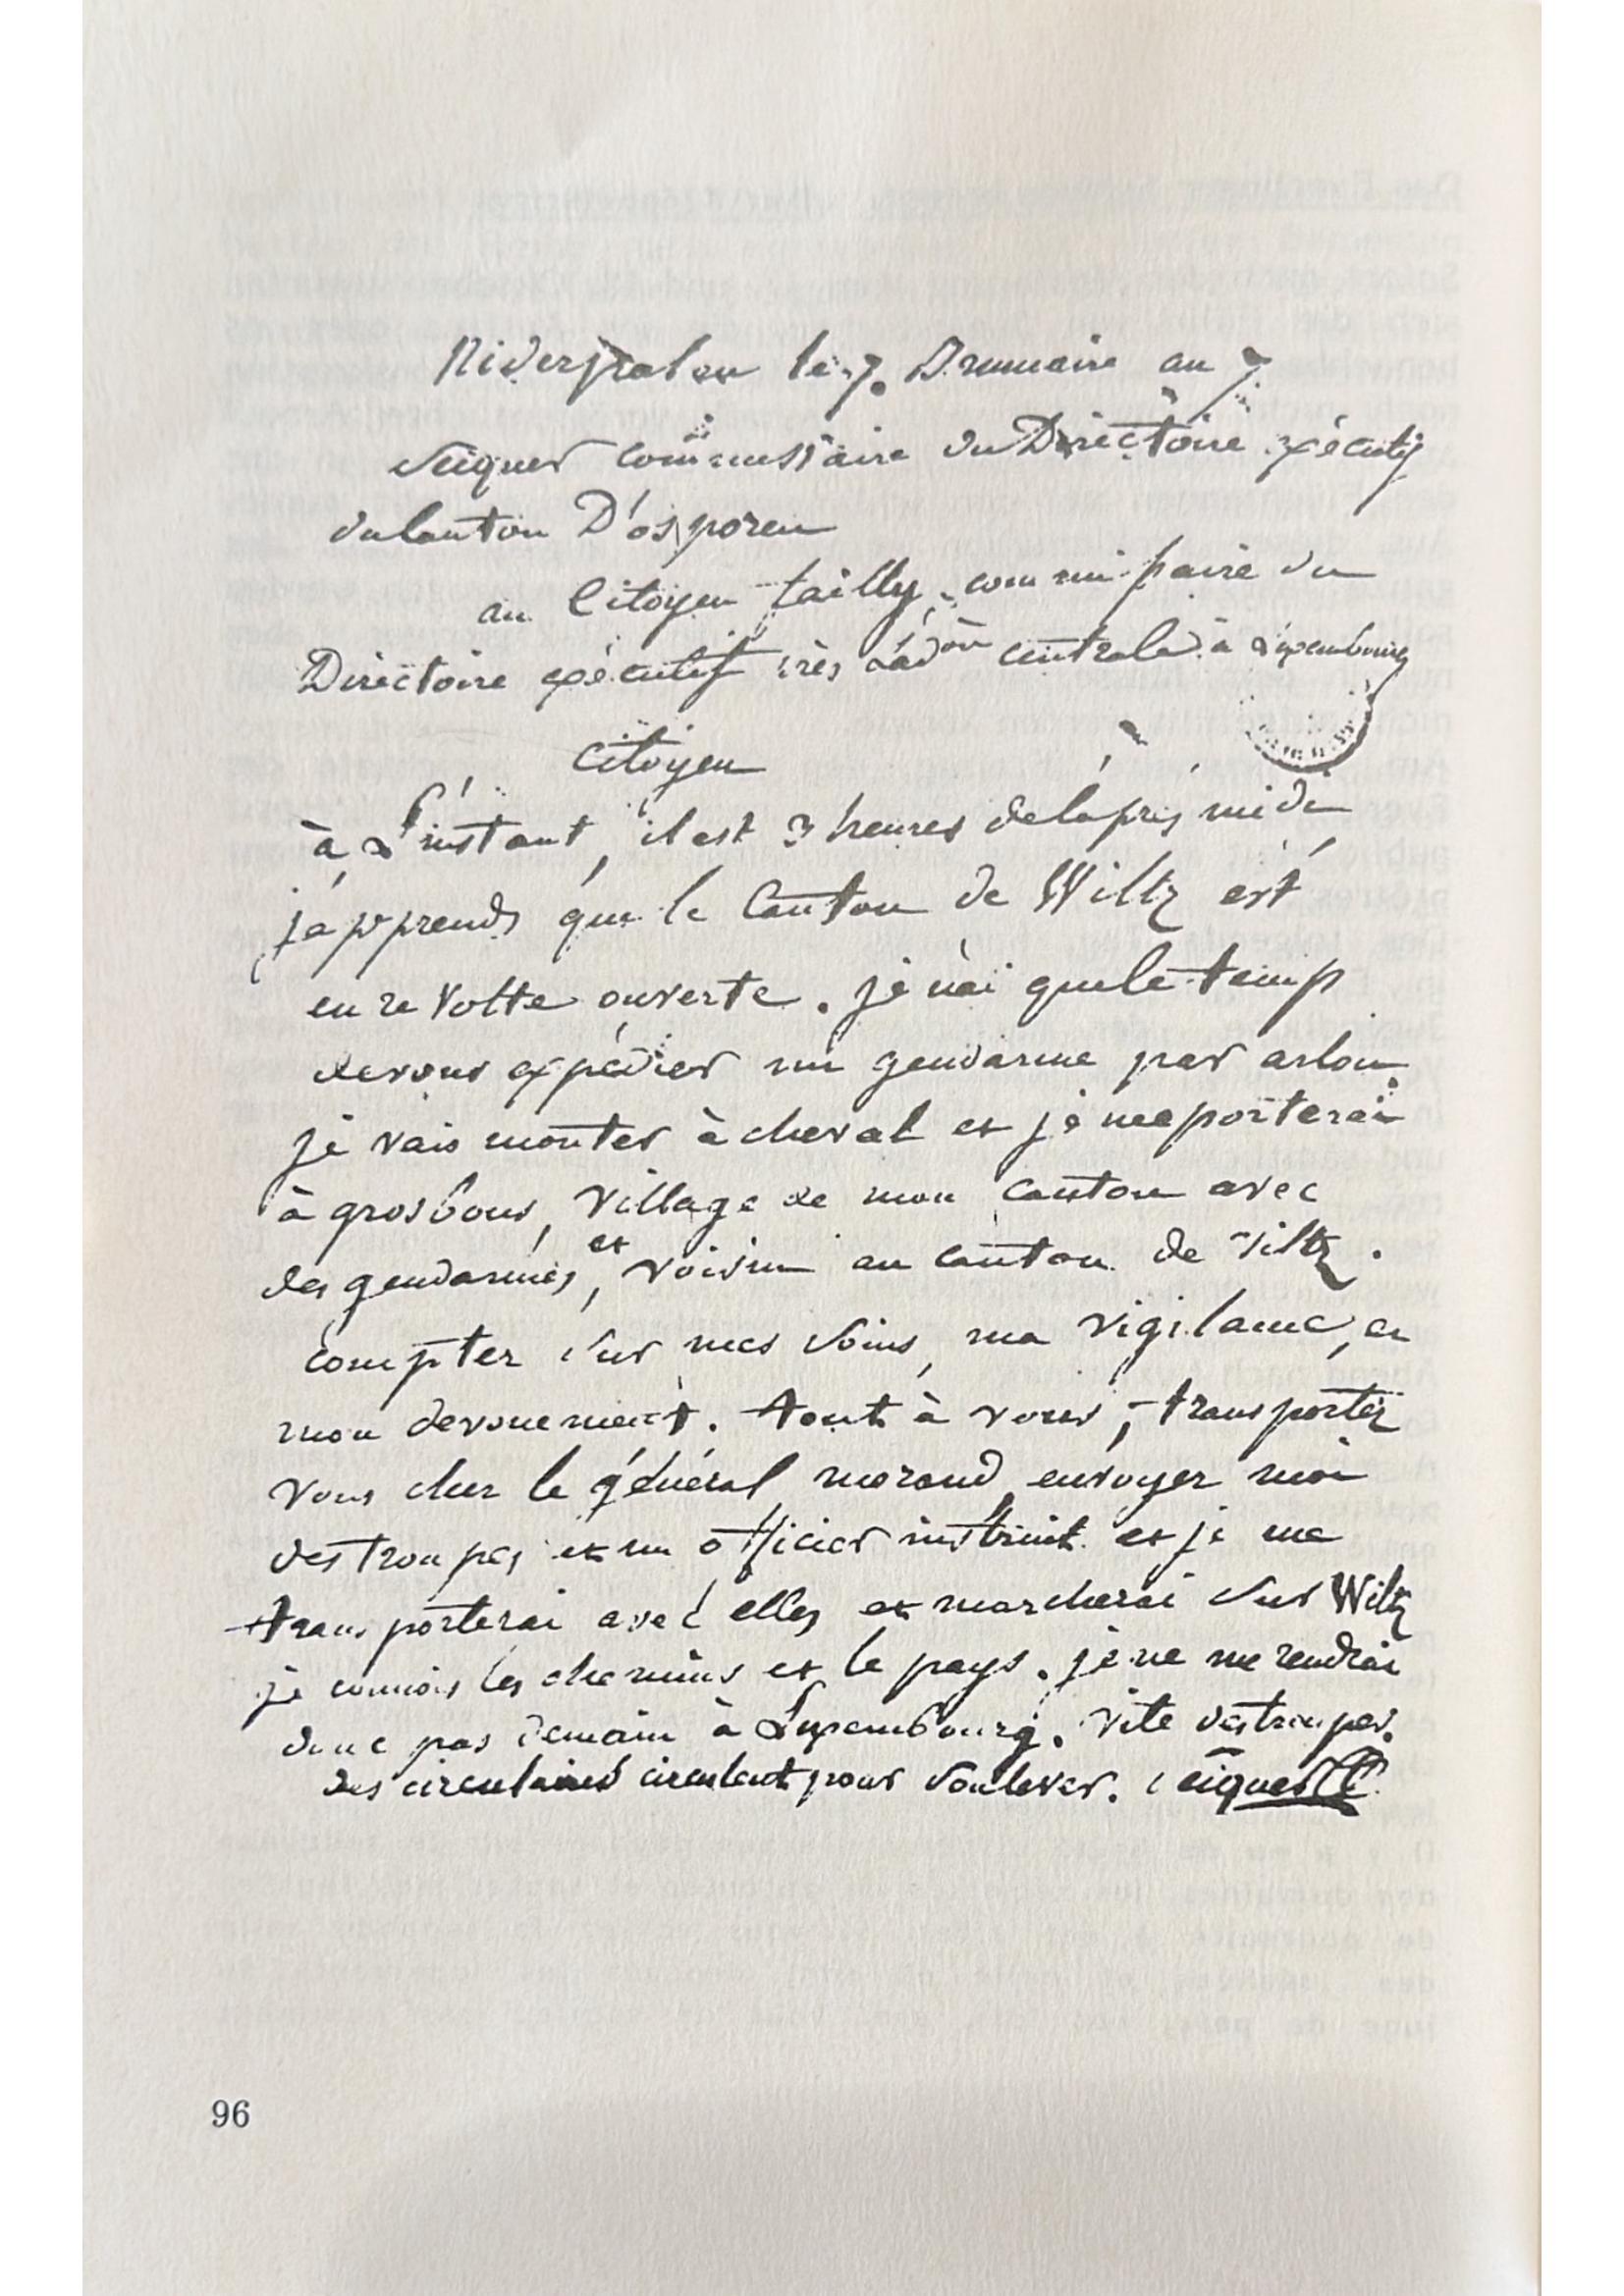 Niderpalen le 7. Brumaire an 7.
Seigner commissaire du Directoire exécutif
du Canton D'osporen
au Citoyen failly, commissaire du
Directoire exécutif près L'adon centrale à Luxembourg
Citoyen
à L'instant, il est 3 heures de l'après midi
j'apprends que le Canton de Wiltz est
en revolte ouverte. je n'ai que le temp
de vous expédier un gendarme par arlon.
je vais monter à cheval et je me porterai
à grosbous, village de mon canton avec
des gendarmes, et voisin au canton de Viltz.
compter sur mes soins, ma vigilance, et
mon devouement. tout à vous, transporter
vous cher le général morand envoyer moi
des troupes et un officier instruit et je me
transporterai avec elles et marcherai sur Wiltz
je connois les chemins et le pays. je ne me rendrai
donc pas demain à Luxembourg. vite des troupes.
des circulaires circulent pour soulever. Seigner
96